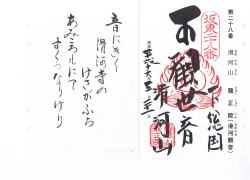 第二十八番 滑河山 龍正院(滑河観音)
坂東二十八番
下総国
観世音
滑河山
音にきく
滑河寺の
けさがふち
あみ衣にて
すくうなりけり